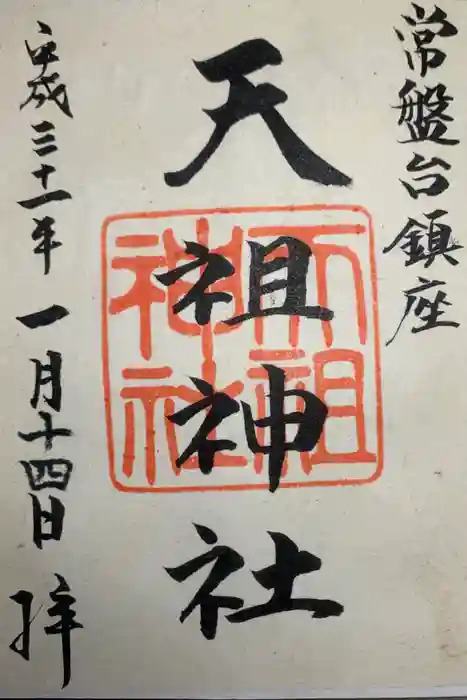 常盤台鎮座
天祖神社
天祖
神社
平成三十一年 一月十四日 拝